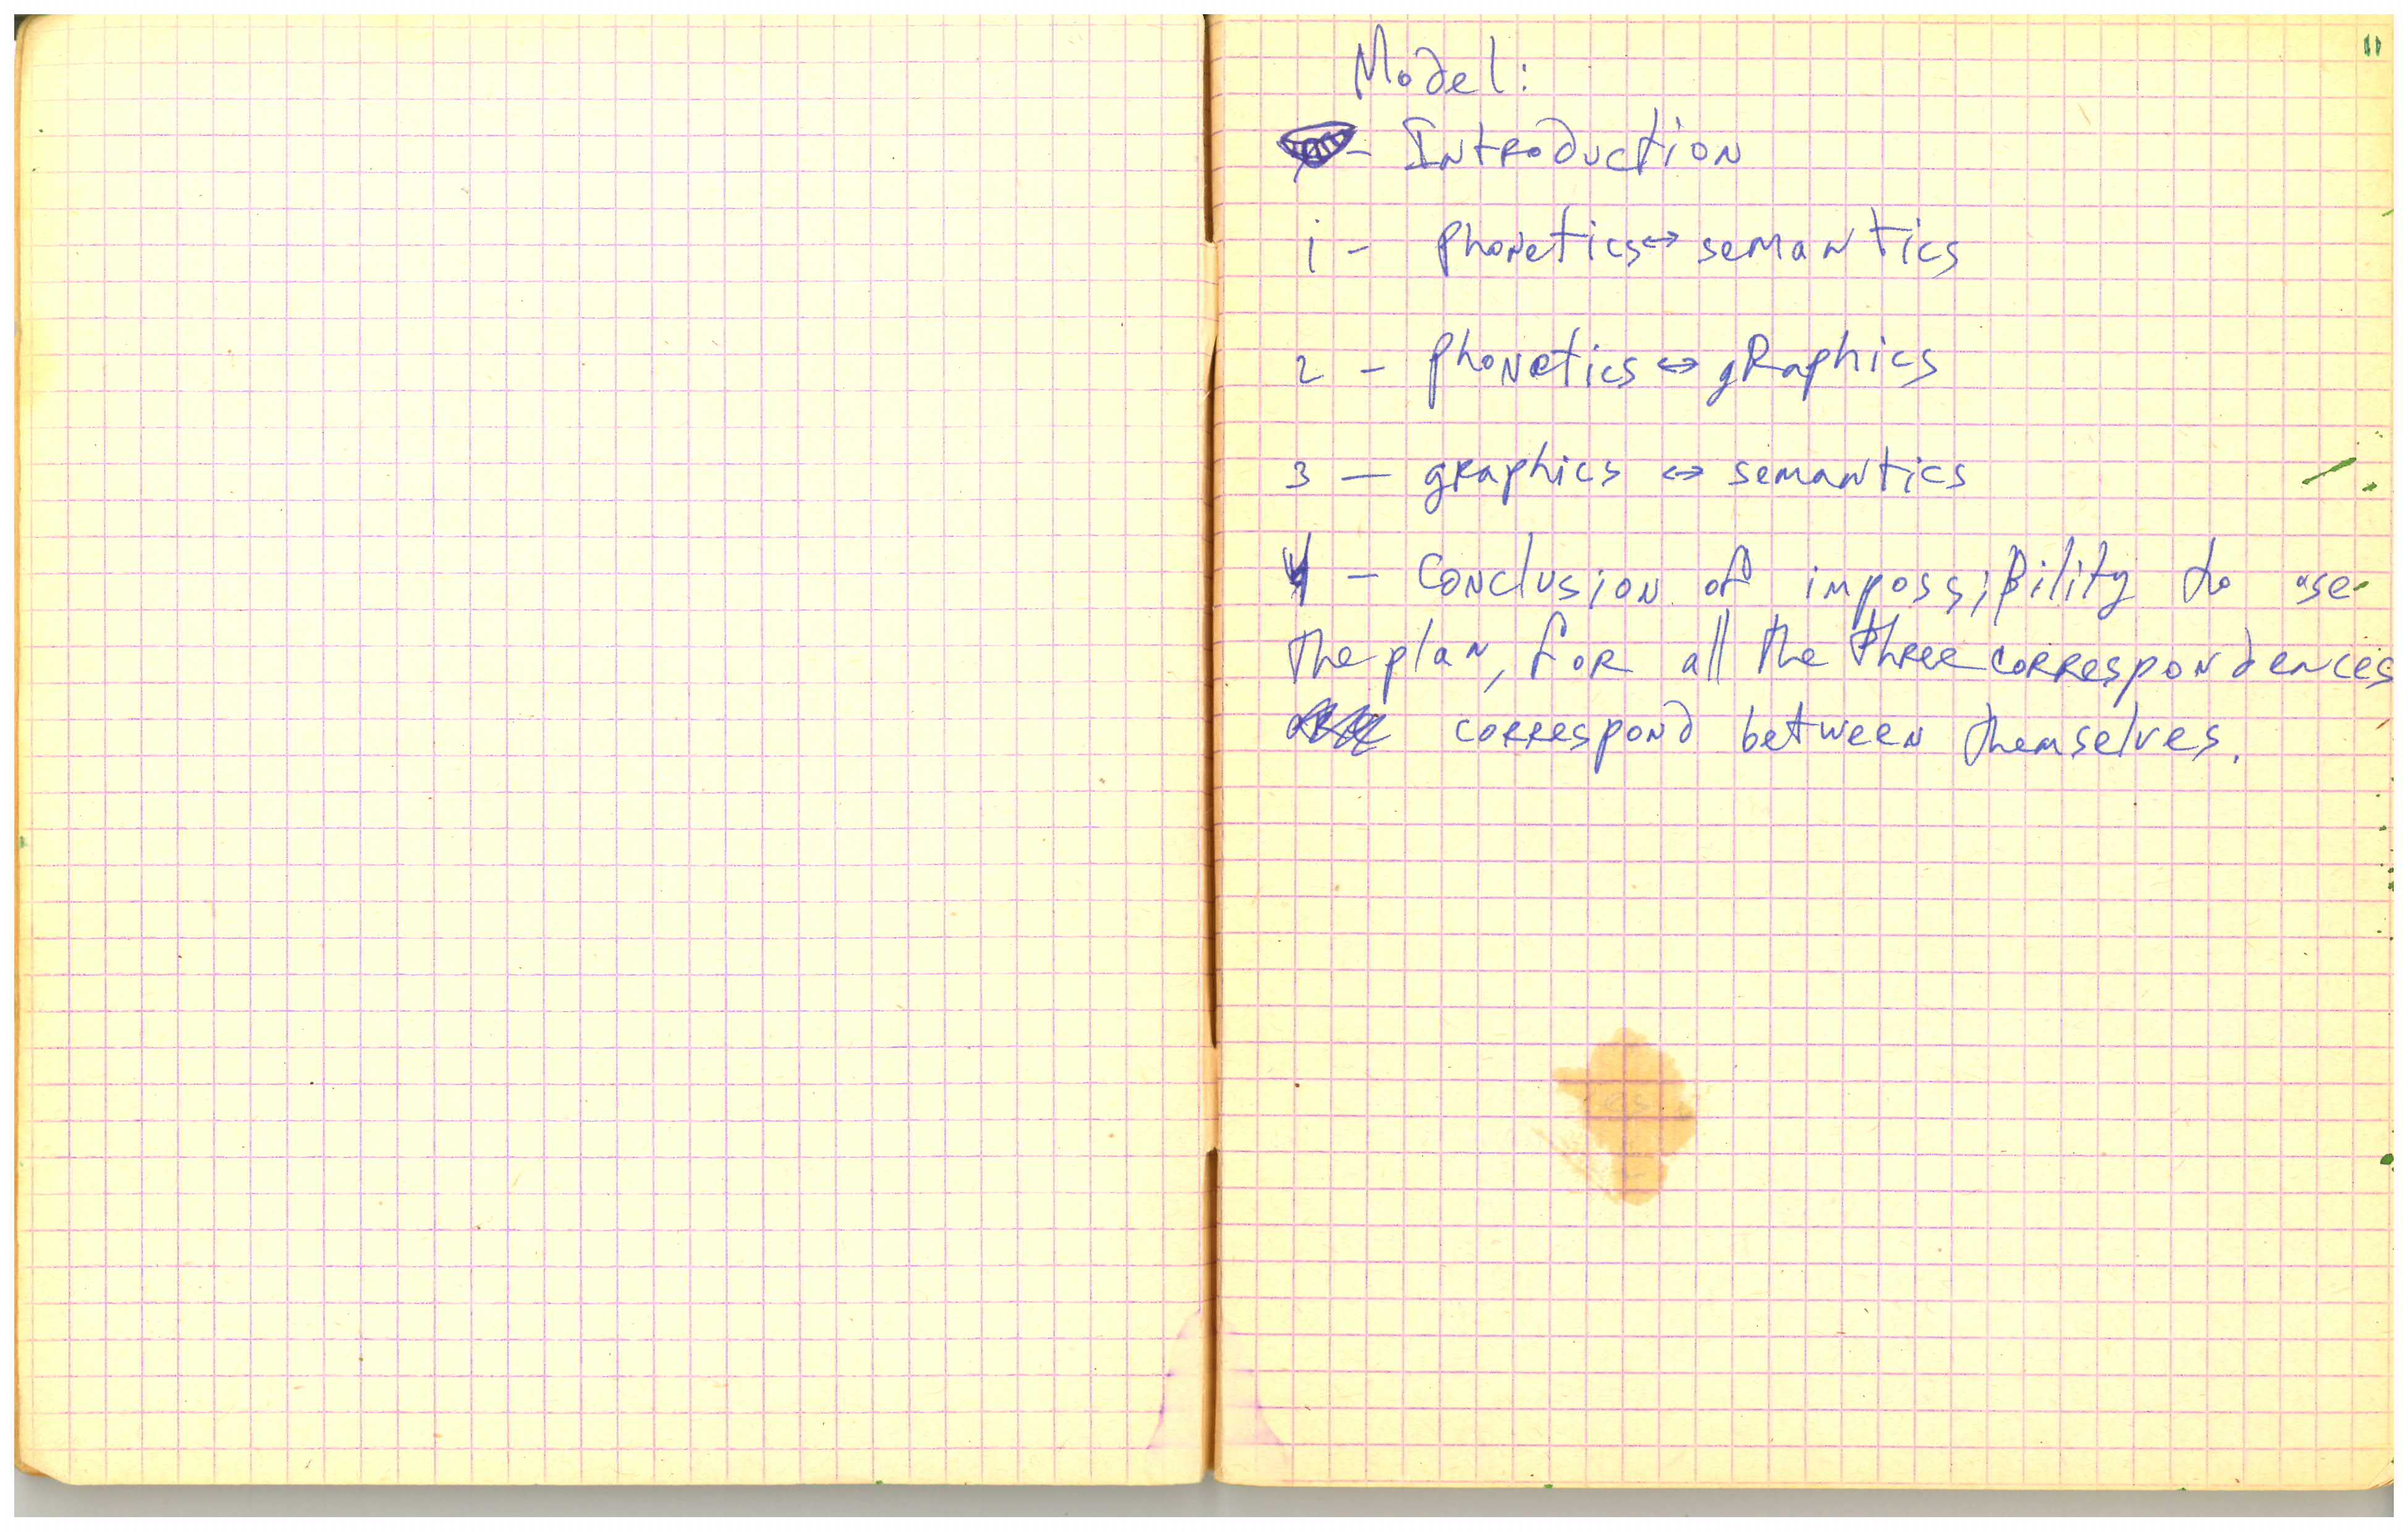 11
Model:
- Introduction
1 - phonetics ↔ semantics
2 - phonetics ↔ gRaphics
3 - graphics ↔ semantics
4 - Conclusion of impossibility to use
the plan, for all the three correspondences
correspond between themselves.